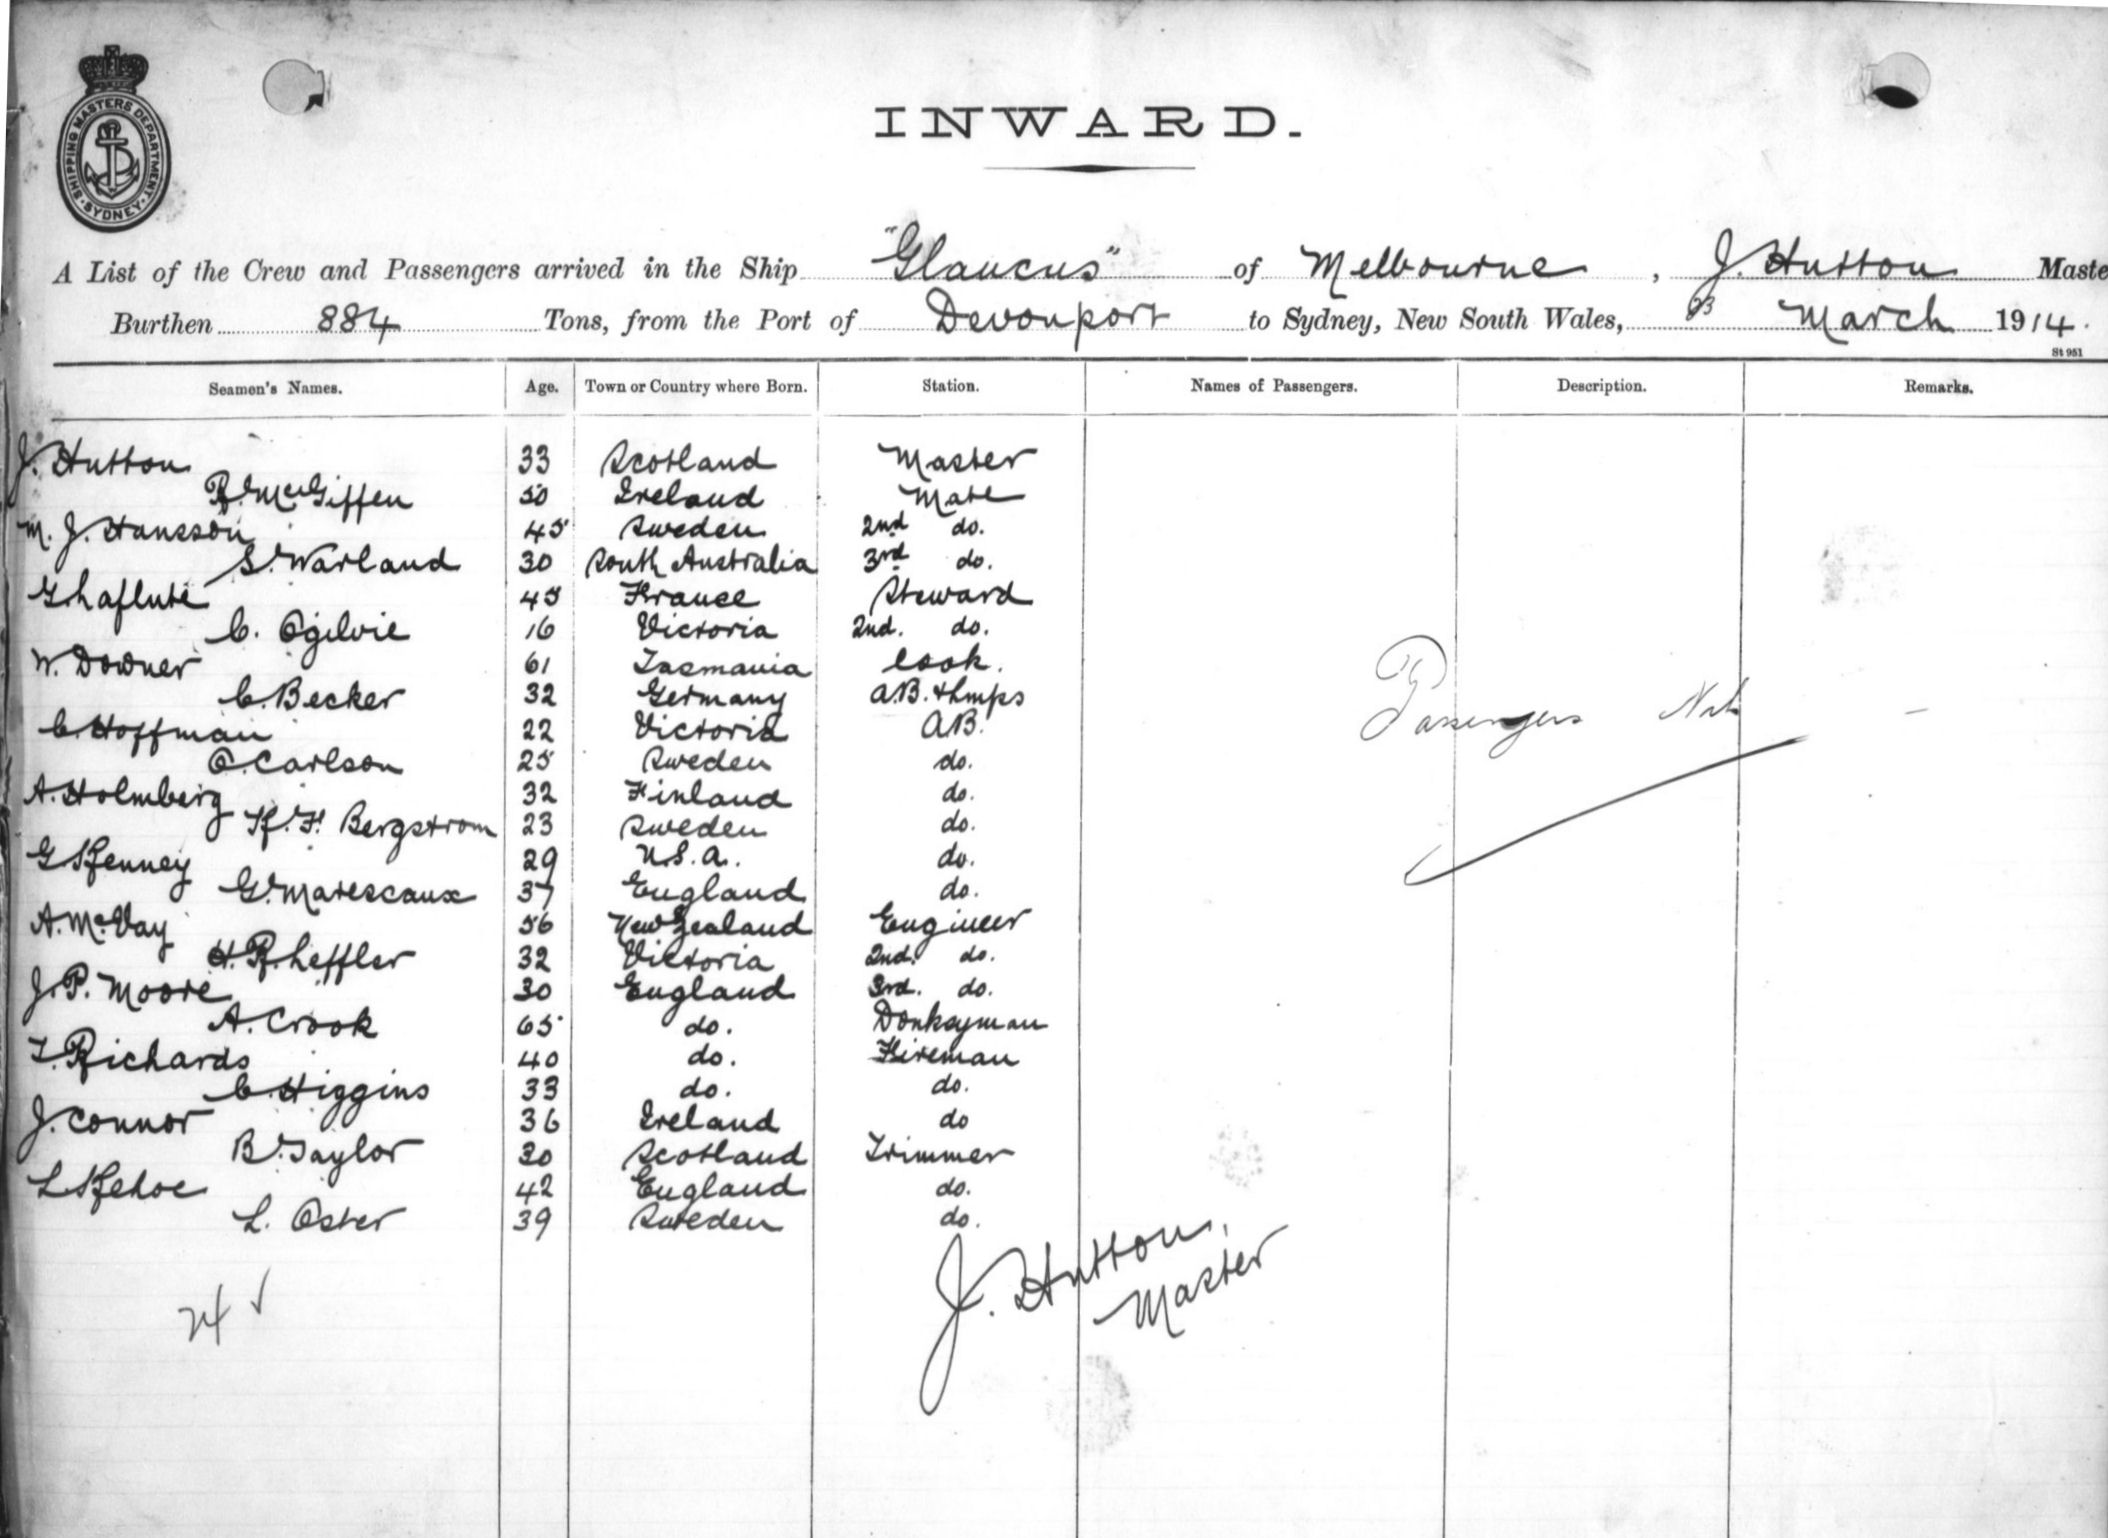 SHIPPING MASTERS DEPARTMENT
SYDNEY
INWARD.
A List of the Crew and Passengers arrived in the Ship "Glaucus" of Melbourne, J. Hutton Maste
Burthen 884 Tons, from the Port of Devonport to Sydney, New South Wales, 23 March 1914.
St 951
Seamen's Names. Age. Town or Country where Born. Station. Names of Passengers. Description. Remarks.
J. Hutton 33 Scotland Master
R. McGiffen 50 Ireland Mate
M. J. Hansson 45 Sweden 2nd do.
S. Warland 30 South Australia 3rd do.
G. Laflute 45 France Steward
C. Ogilvie 16 Victoria 2nd. do.
W. Downer 61 Tasmania Cook.
C. Becker 32 Germany A.B. & Lmps
C. Hoffman 22 Victoria AB.
O. Carlson 25 Sweden do.
A. Holmberg 32 Finland do.
K. F. Bergstrom 23 Sweden do.
G Kenney 29 U.S.A. do.
G. Marescaux 37 England do.
A. McVay 56 New Zealand Engineer
H. R. Leffler 32 Victoria 2nd. do.
J. P. Moore 30 England 3rd. do.
A. Crook 65 do. Donkeyman
T. Richards 40 do. Fireman
C. Higgins 33 do. do.
J. Connor 36 Ireland do
B. Taylor 30 Scotland Trimmer
L Kehoe 42 England do.
L. Oster 39 Sweden do.
Passengers Nil —
24 ✓
J. Hutton,
Master